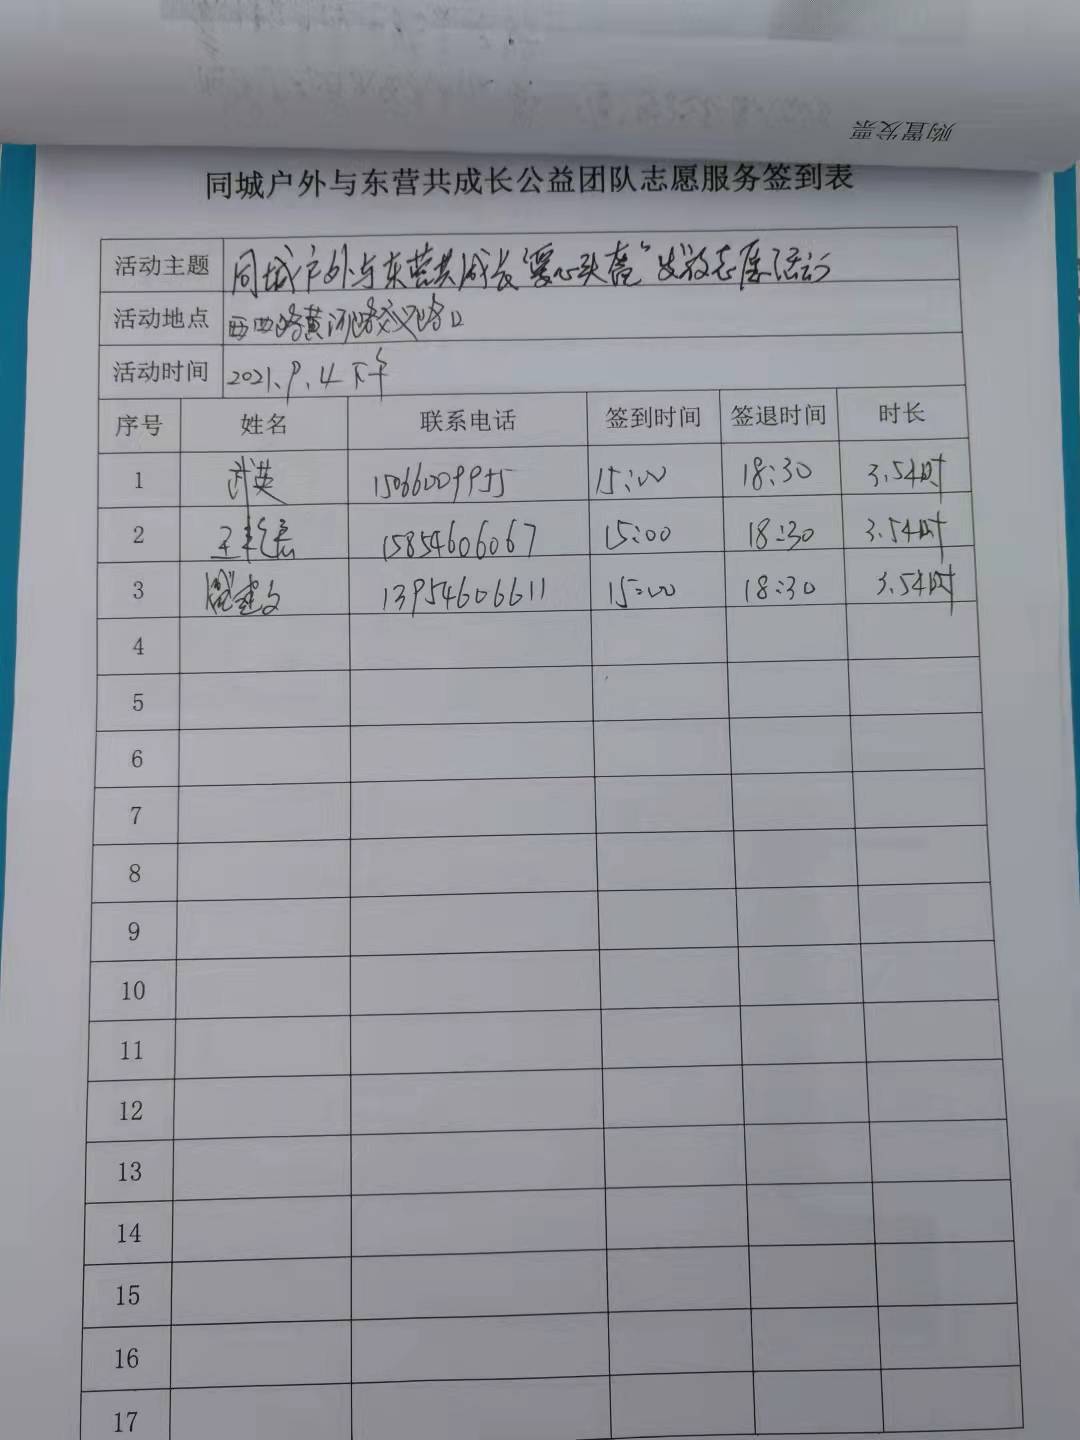 购置发票
同城户外与东营共成长公益团队志愿服务签到表
活动主题 同城户外与东营共成长"爱心头盔"发放志愿活动
活动地点 西四路黄河路交叉路口
活动时间 2021.9.4下午
序号 姓名 联系电话 签到时间 签退时间 时长
1 武英 15066009955 15:00 18:30 3.5小时
2 王 15854606067 15:00 18:30 3.5小时
3 建文 13954606611 15:00 18:30 3.5小时
4
5
6
7
8
9
10
11
12
13
14
15
16
17